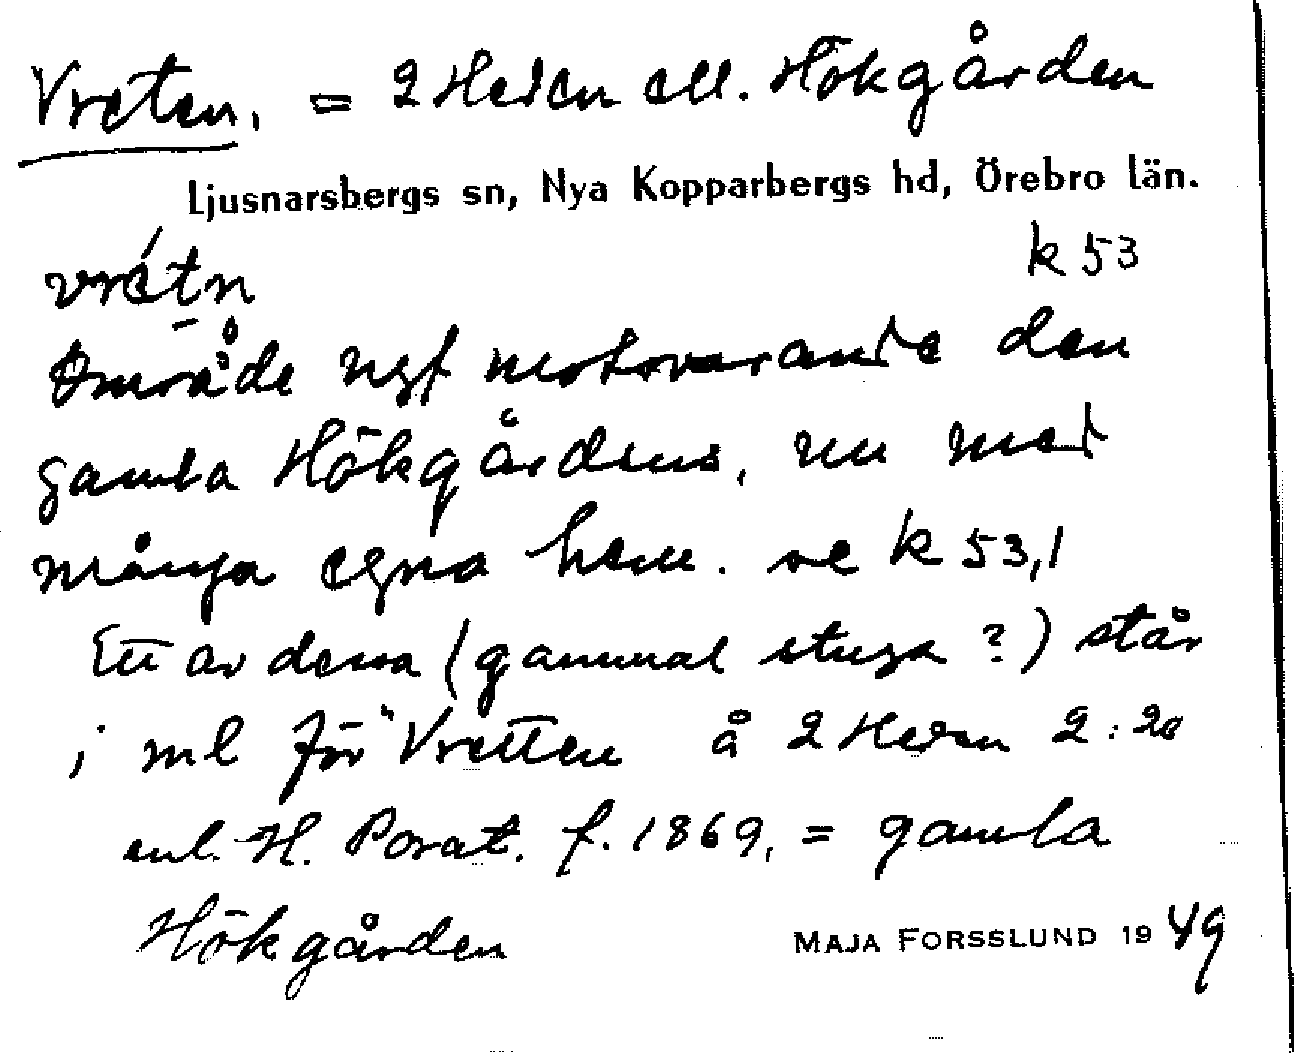 Vreten. = 2 Heden ell. Hökgården
Ljusnarsbergs sn, Nya Kopparbergs hd, Örebro län.
k 53
vrétn
Område ngt motsvarande den
gamla Hökgårdens, nu med
många egna hem. se k 53,1
Ett av dessa (gammal stuga?) står
i ml för "Vretten å 2 Heden 2:20
enl. H. Posat. f. 1869, = gamla
Hökgården
MAJA FORSSLUND 1949